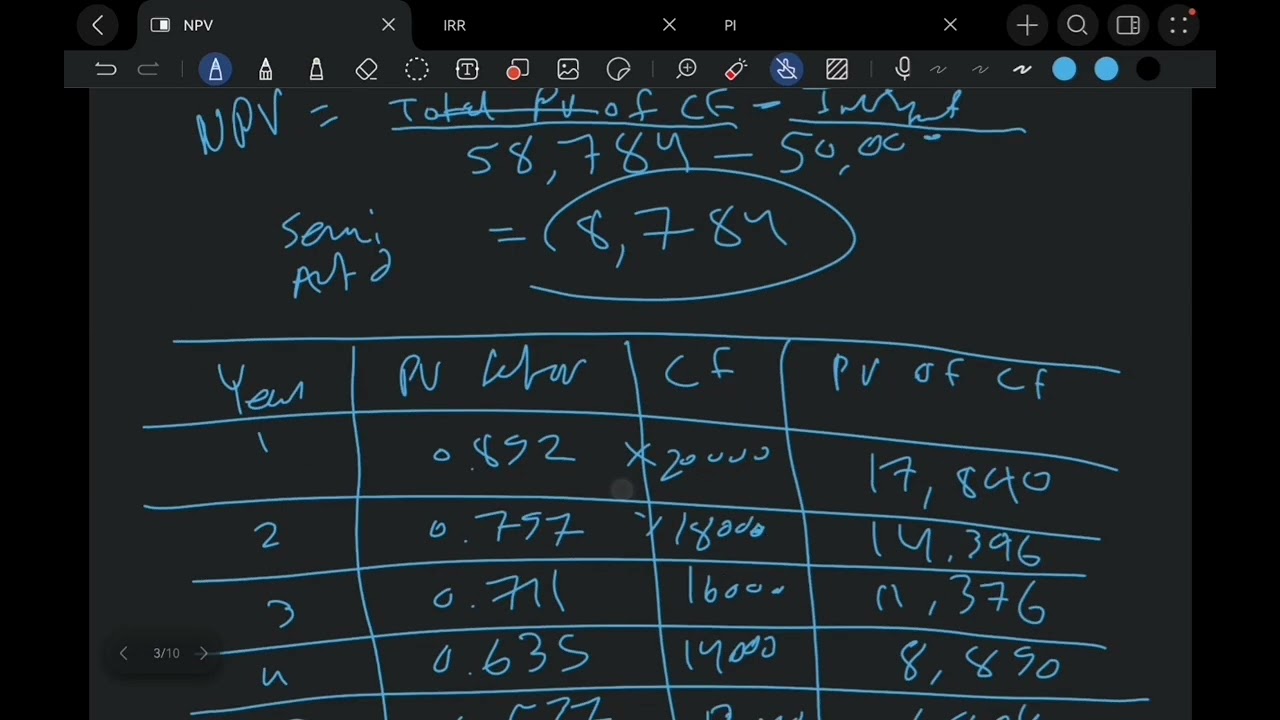 NPV IRR PI
NPV = Total PV of CF - Invest
58,784 - 50,000
Semi = 8,784
Year PV factor CF PV of CF
1 0.892 × 20000 17,840
2 0.797 × 18000 14,396
3 0.711 16000 11,376
4 0.635 14000 8,890
3/10